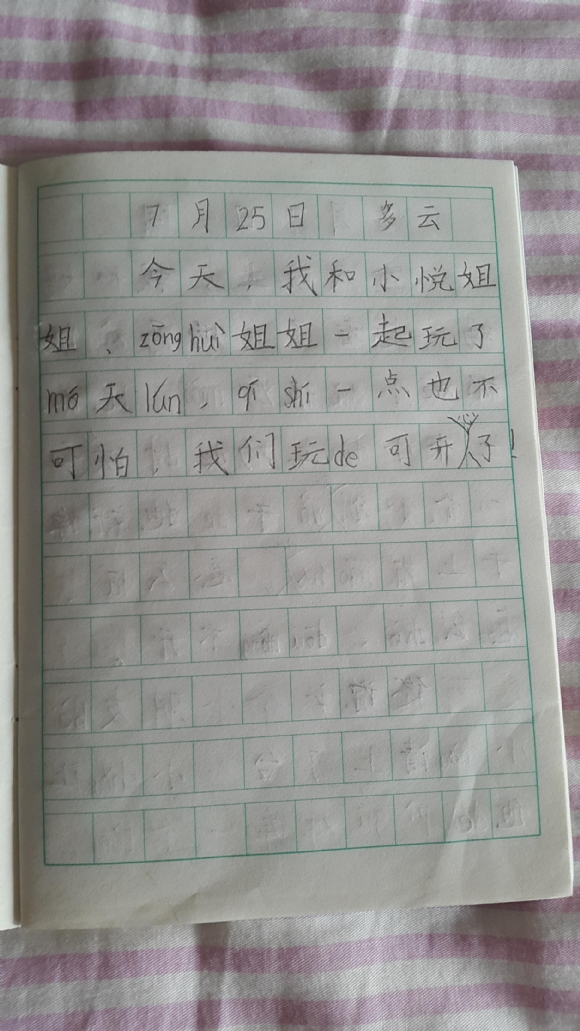 7月25日 多云
今天，我和小悦姐
姐、zōnghuì姐姐一起玩了
mó天lún，qí shí一点也不
可怕，我们玩de可开了！